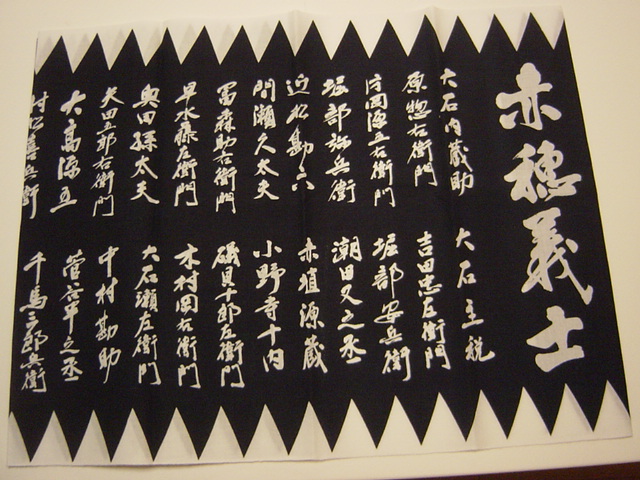 赤穂義士
大石内蔵助
大石主税
原惣右衛門
吉田忠左衛門
片岡源五右衛門
堀部安兵衛
堀部弥兵衛
潮田又之丞
近松勘六
赤埴源蔵
間瀬久太夫
小野寺十内
冨森助右衛門
磯貝十郎左衛門
早水藤左衛門
木村岡右衛門
奥田孫太夫
大石瀬左衛門
矢田五郎右衛門
中村勘助
大高源五
菅谷半之丞
村松喜兵衛
千馬三郎兵衛